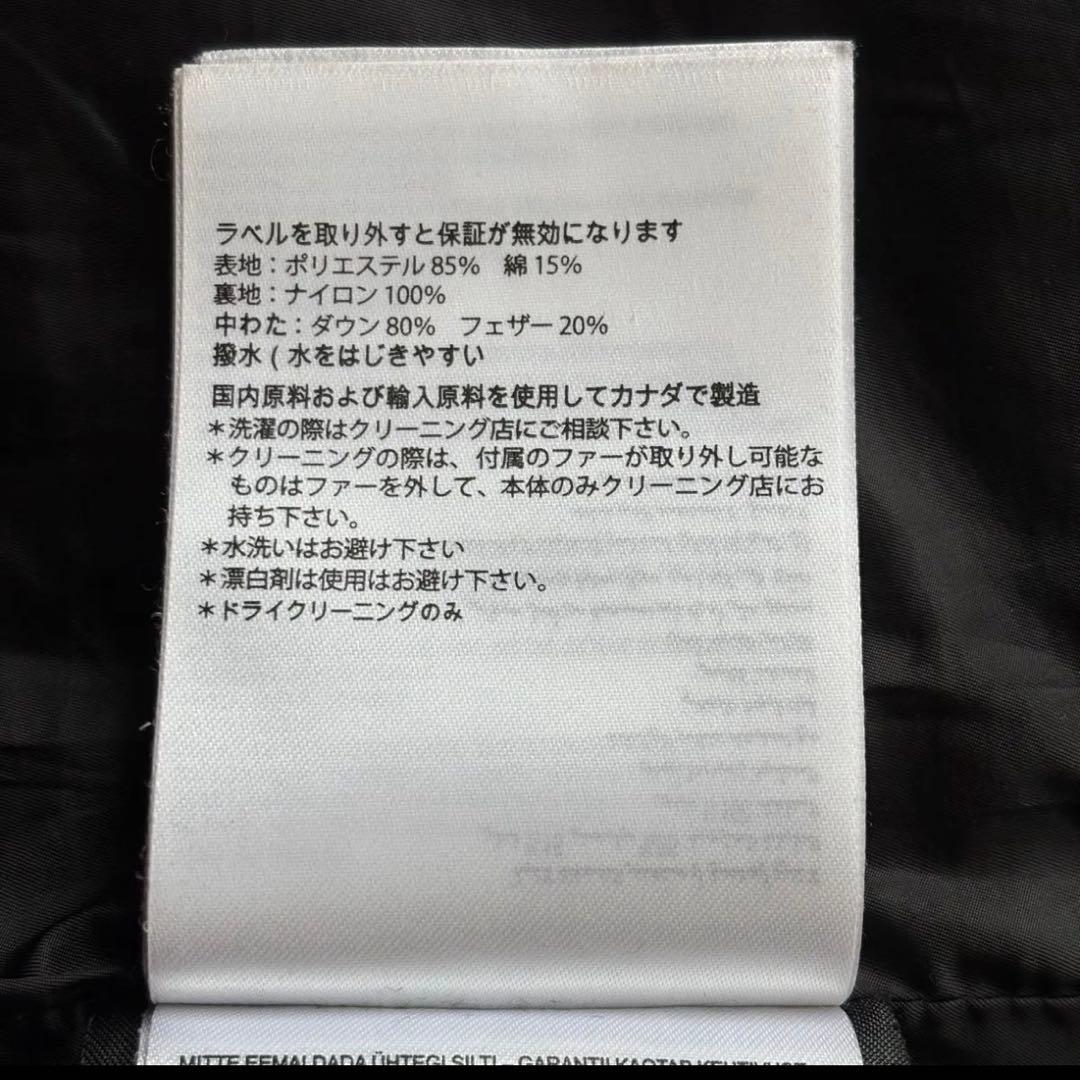 ラベルを取り外すと保証が無効になります
表地：ポリエステル 85%　綿 15%
裏地：ナイロン 100%
中わた：ダウン 80%　フェザー 20%
撥水 ( 水をはじきやすい
国内原料および輸入原料を使用してカナダで製造
＊洗濯の際はクリーニング店にご相談下さい。
＊クリーニングの際は、付属のファーが取り外し可能な
ものはファーを外して、本体のみクリーニング店にお
持ち下さい。
＊水洗いはお避け下さい
＊漂白剤は使用はお避け下さい。
＊ドライクリーニングのみ
MITTE EEMALDADA ÜHTEGI SILTI – GARANTII KAOTAB KEHTIVUSE